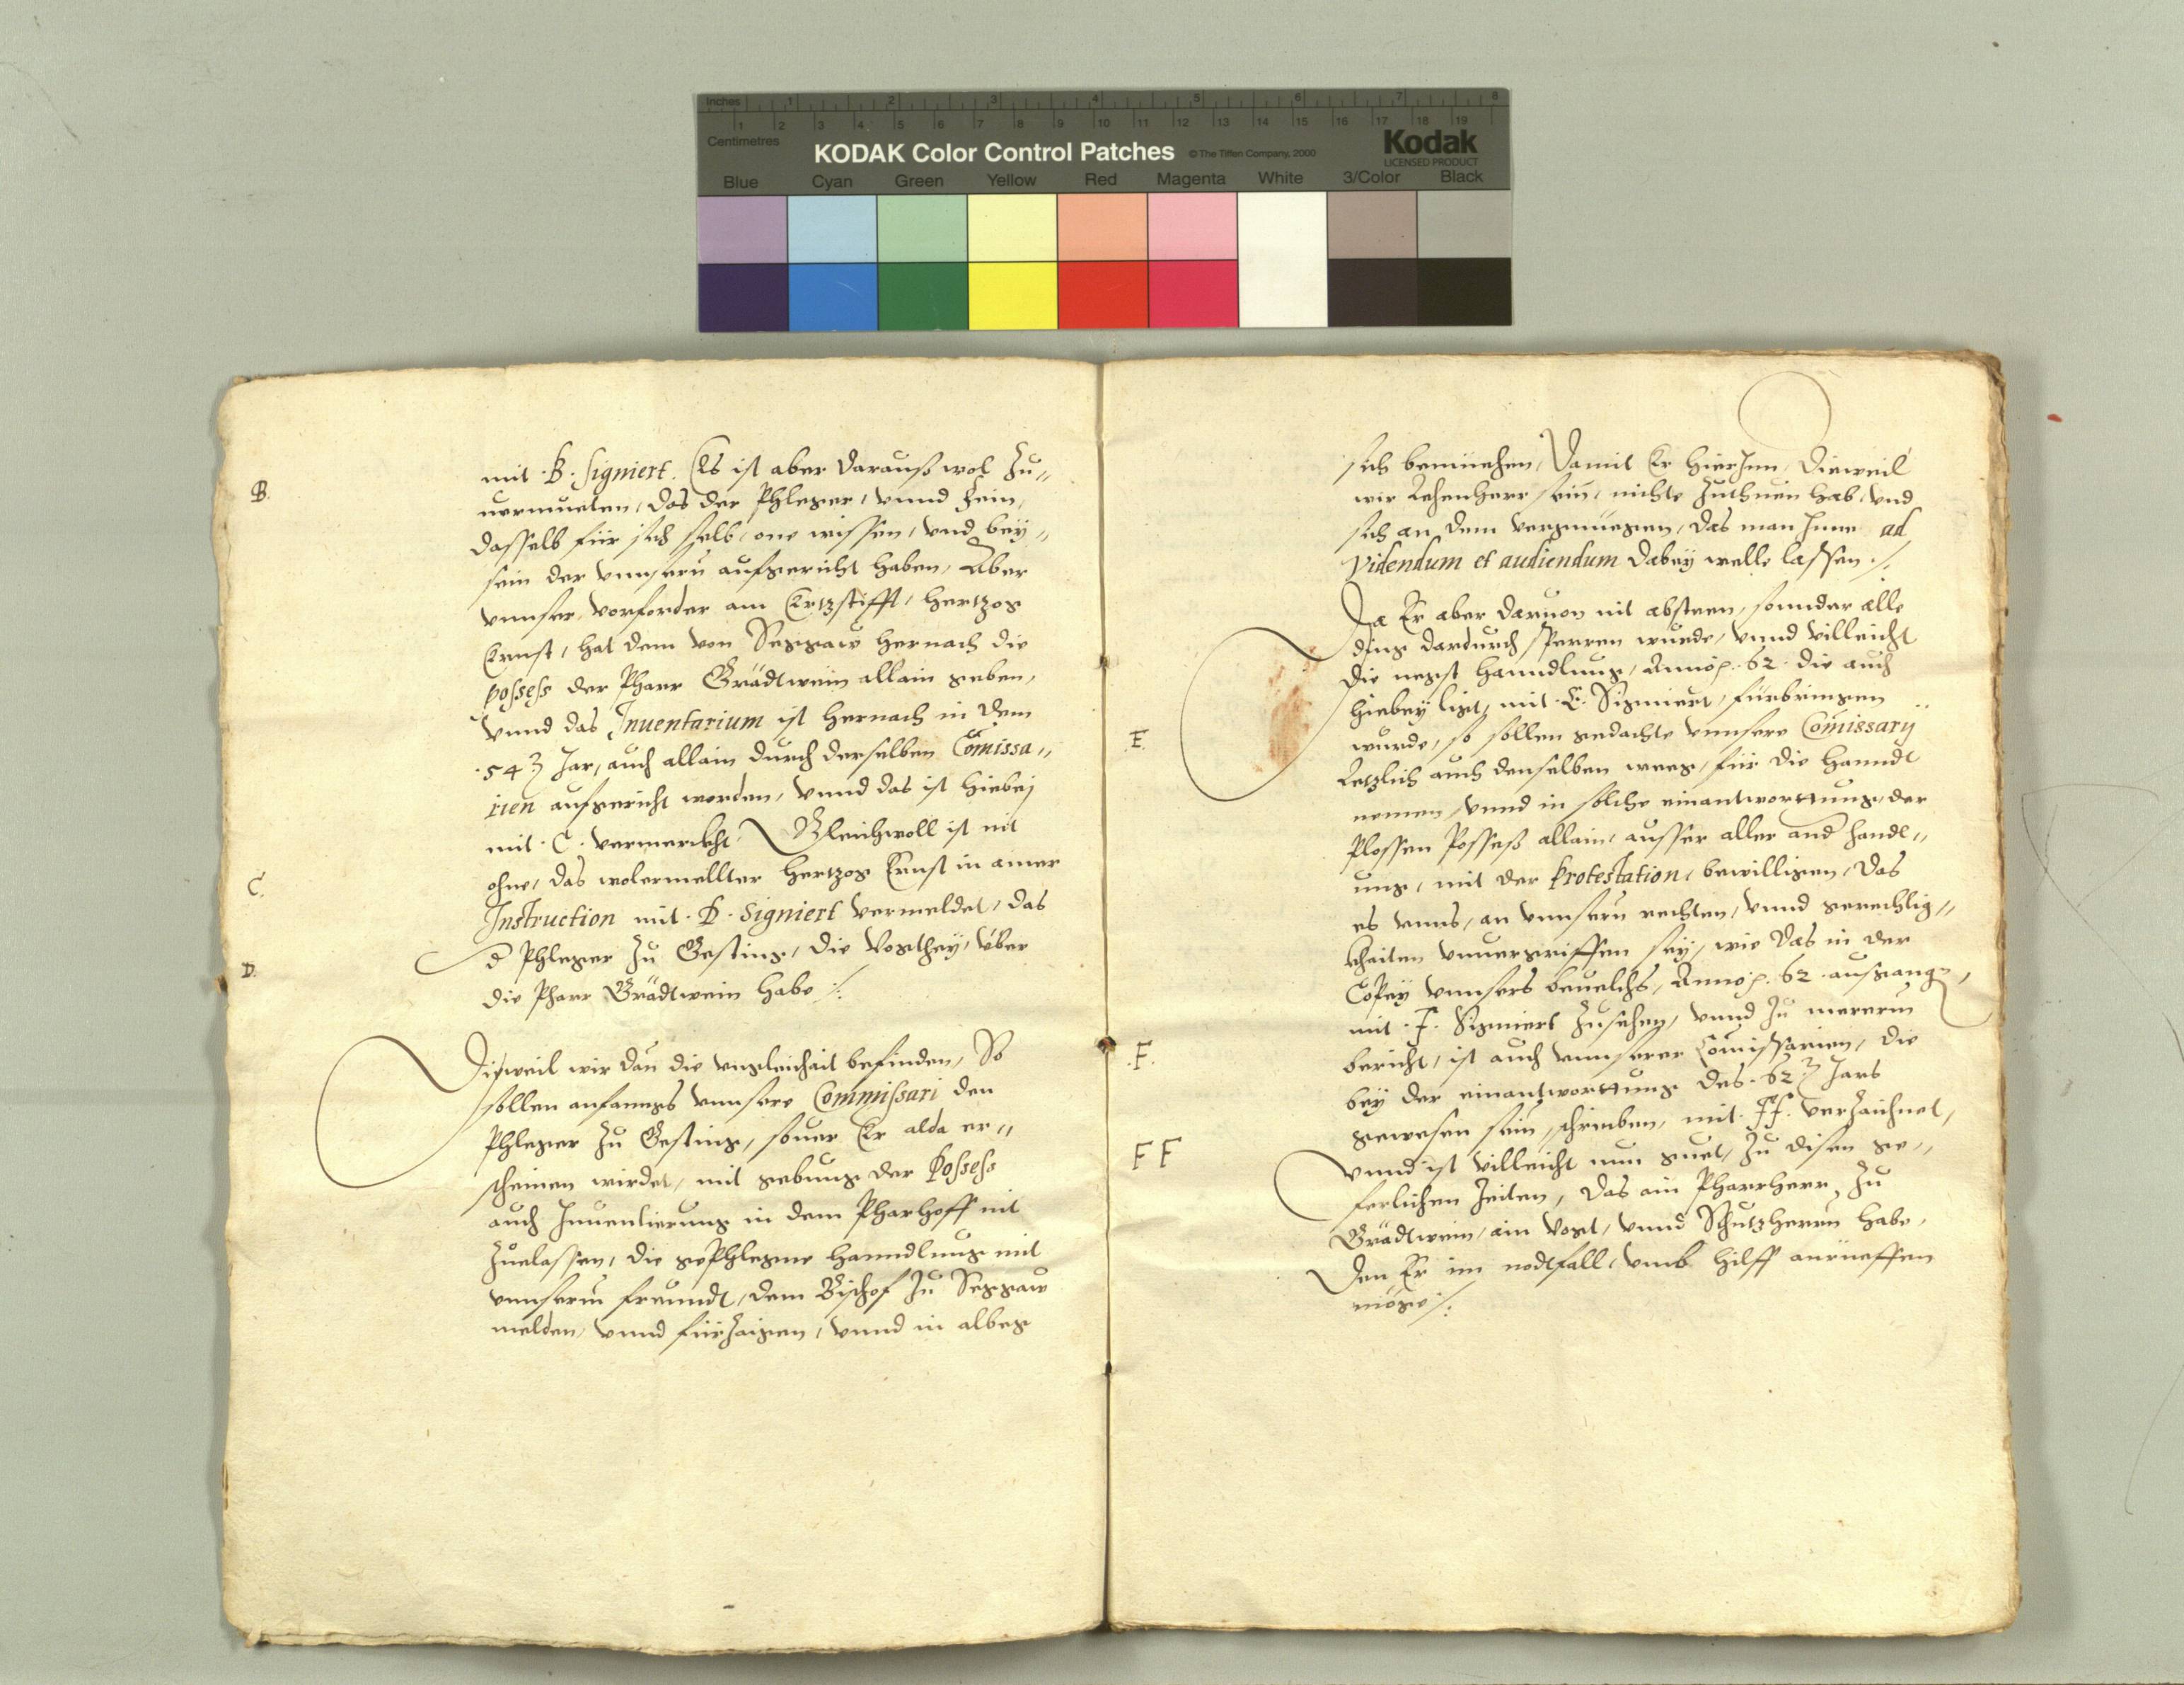 Inches 1 2 3 4 5 6 7 8
Centimetres 1 2 3 4 5 6 7 8 9 10 11 12 13 14 15 16 17 18 19
KODAK Color Control Patches © The Tiffen Company, 2000 Kodak
LICENSED PRODUCT
Blue Cyan Green Yellow Red Magenta White 3/Color Black
B.
mit .B. signiert. Es ist aber darauß wol zu„
uermueten, das der Phleger, vnnd sein,
dasselb für sich selb, one wissen, vnd bey„
sein der vnnsern aufgericht haben, Aber
vnnser vorforder am Ertzstifft, hertzog
Ernst, hat dem von Seggaw hernach die
possess der Pharr Grädtwein allain geben,
vnnd das Inuentarium ist hernach in dem
.54 Jar, auch allain durch derselben Comissa„
rien aufgericht worden, vnnd das ist hiebej
mit .C. vermerckht. Gleichwoll ist nit
C.
ohne, das wolermellter hertzog Ernst in ainer
Instruction mit .D. signiert vermeldet, das
D.
d Phleger zu Gesting, die Vogthey, vber
die Pharr Grädtwein habe /:
Dieweil wir dan die vngleichait befinden, So
sollen anfanngs vnnsere Commissari den
Phleger zu Gesting, souer Er alda er„
scheinen wirdet, mit gebung der Possess
auch Inuentierung in dem Pharhoff nit
zuelassen, die gephlegne hanndlung mit
vnnserm freundt, dem Bischof zu Seggaw
melden, vnnd fürzaigen, vnnd in albeg
sich bemüehen, damit Er hierInn, dieweil
wir Lehenherr sein, nichts zuthuen hab, vnd
sich an dem vergnüegen, das man Ime ad
videndum et audiendum dabey welle lassen /.
Da Er aber daruon nit absteen, sonnder alle
ding dardurch sperren wurde, vnnd villeicht
die negst hanndlung, Anno .62. die auch
hiebey ligt, mit .E. Signiert, fürbringen
E.
wurde, so sollen gedachte vnnsere Comissarij
Letzlich auch denselben weeg, für die hanndt
nemen, vnnd in solche einantworttung, der
Plossen Possess allain, ausser aller and handl„
ung, mit der Protestation, bewilligen, das
es vnns, an vnnsern rechten, vnnd gerechtig„
khaiten vnuergriffen sey, wie das in der
Copey vnnsers beuelchs, Anno .62. ausgang,
mit .F. Signiert zusehen, vnnd zu mererm
F.
bericht, ist auch vnnserer Comissarien, die
bey der einantworttung des .62 Jars
gewesen sein, schreiben, mit .FF. verzaichnet,
FF
vnnd ist villeicht nun guet, zu disen ge„
ferlichen Zeiten, das ain Pharrherr, zu
Grädtwein, ain Vogt, vnnd Schutzherrn habe,
den Er im nodtfall, vmb hilff anrüeffen
müge /: